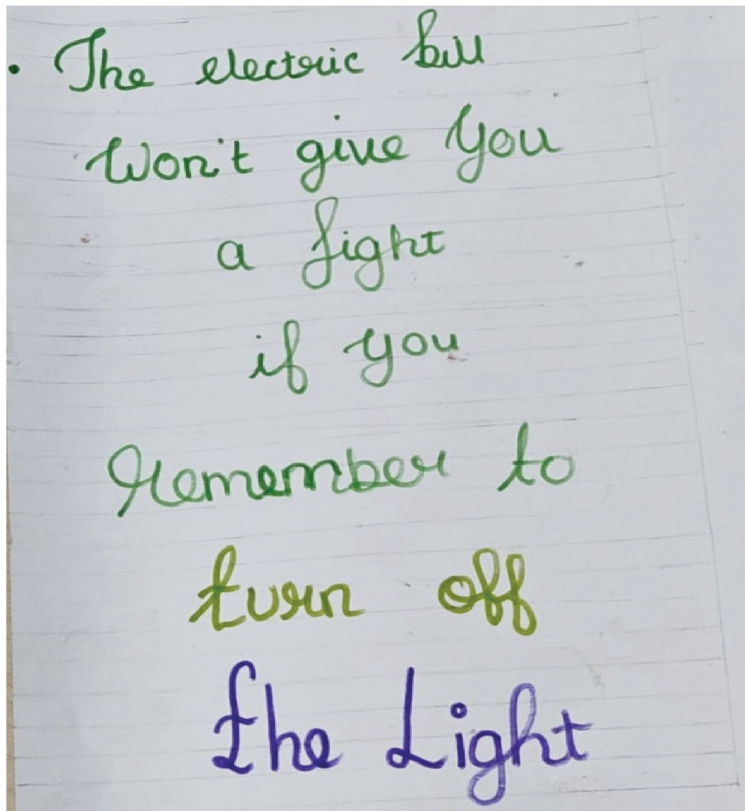 • The electric bill
Won't give you
a fight
if you
Remember to
turn off
the Light